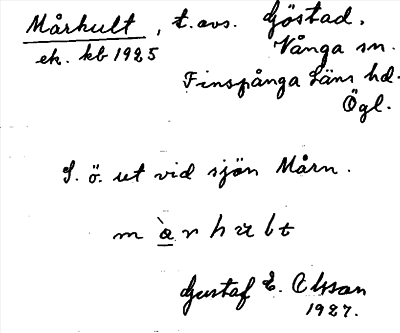 Mårhult, t. avs. Göstad,
ek. kb 1925 Vånga sn.
Finspånga Läns hd.
Ögl.
S. ö. ut vid sjön Mårn.
Gustaf E. Olsson
1927.